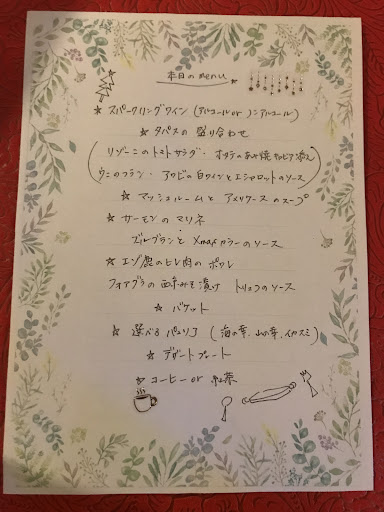 本日のmenu
★ スパークリングワイン (アルコール or ノンアルコール)
★ タパスの盛り合わせ
リゾーニのトマトサラダ・ホタテのあぶり焼キャビア添え
ウニのフラン・アワビの白ワインとエシャロットのソース
★ マッシュルームとアメリケーヌのスープ
★ サーモンのマリネ
ブールブランとXmasカラーのソース
★ エゾ鹿のヒレ肉のポワレ
フォアグラの西京みそ漬け トリュフのソース
★ バケット
★ 選べるパエリア (海の幸、山の幸、イカスミ)
★ デザートプレート
★ コーヒー or 紅茶